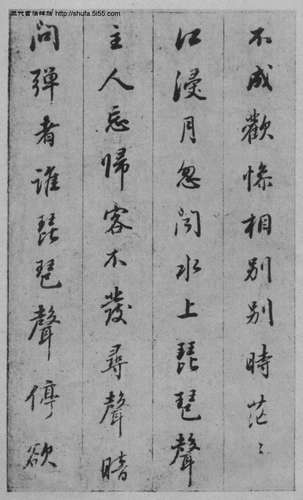 五代書法神法 http://shufa.5i55.com
不成歡慘相別別時茫〻
江浸月忽闻水上琵琶聲
主人忘歸客不發尋聲暗
問彈者誰琵琶聲停欲